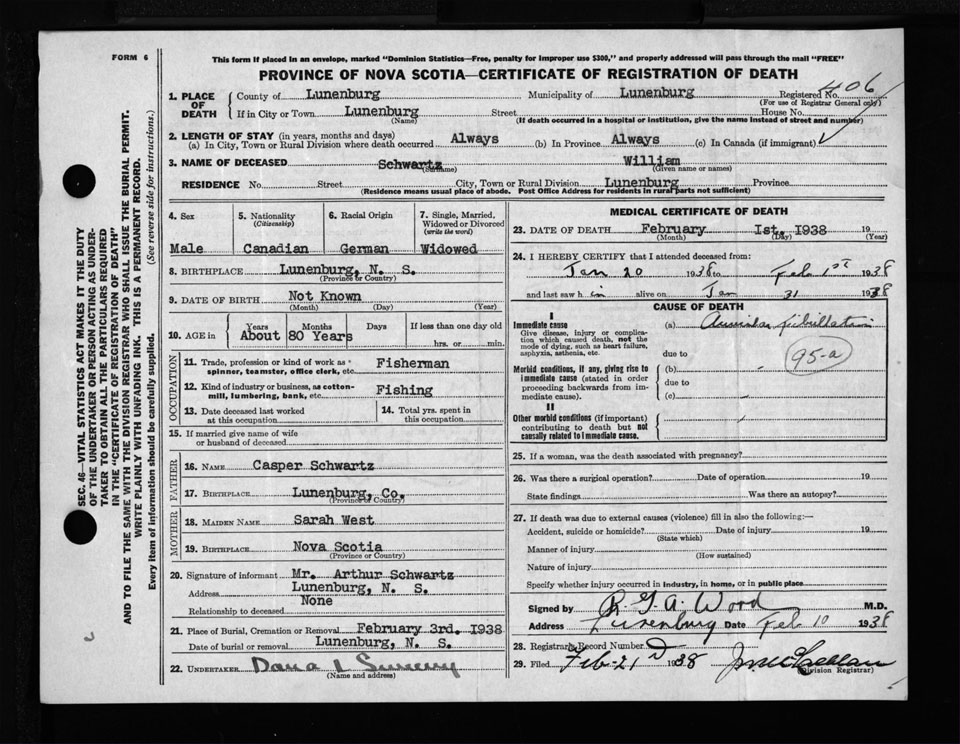 FORM 6
This form if placed in an envelope, marked "Dominion Statistics—Free, penalty for improper use $300," and properly addressed will pass through the mail "FREE"
PROVINCE OF NOVA SCOTIA—CERTIFICATE OF REGISTRATION OF DEATH
SEC. 46—VITAL STATISTICS ACT MAKES IT THE DUTY
OF THE UNDERTAKER OR PERSON ACTING AS UNDER-
TAKER TO OBTAIN ALL THE PARTICULARS REQUIRED
IN THE "CERTIFICATE OF REGISTRATION OF DEATH"
AND TO FILE THE SAME WITH THE DIVISION REGISTRAR WHO SHALL ISSUE THE BURIAL PERMIT.
WRITE PLAINLY WITH UNFADING INK. THIS IS A PERMANENT RECORD.
Every item of information should be carefully supplied. (See reverse side for instructions.)
1. PLACE OF DEATH
County of Lunenburg Municipality of Lunenburg Registered No. 406
(For use of Registrar General only)
If in City or Town Lunenburg Street House No.
(Name) (If death occurred in a hospital or institution, give the name instead of street and number)
2. LENGTH OF STAY (in years, months and days)
(a) In City, Town or Rural Division where death occurred Always (b) In Province Always (c) In Canada (if immigrant)
3. NAME OF DECEASED Schwartz William
(Surname) (Given name or names)
RESIDENCE No. Street City, Town or Rural Division Lunenburg Province
(Residence means usual place of abode. Post Office Address for residents in rural parts not sufficient)
4. Sex 5. Nationality 6. Racial Origin 7. Single, Married,
(Citizenship) Widowed or Divorced
(write the word)
Male Canadian German Widowed
8. BIRTHPLACE Lunenburg, N. S.
(Province or Country)
9. DATE OF BIRTH Not Known
(Month) (Day) (Year)
10. AGE in Years Months Days If less than one day old
About 80 Years hrs. or min.
OCCUPATION
11. Trade, profession or kind of work as
spinner, teamster, office clerk, etc. Fisherman
12. Kind of industry or business, as cotton-
mill, lumbering, bank, etc. Fishing
13. Date deceased last worked 14. Total yrs. spent in
at this occupation this occupation
15. If married give name of wife
or husband of deceased
FATHER
16. NAME Casper Schwartz
17. BIRTHPLACE Lunenburg, Co.
(Province or Country)
MOTHER
18. MAIDEN NAME Sarah West
19. BIRTHPLACE Nova Scotia
(Province or Country)
20. Signature of informant Mr. Arthur Schwartz
Address Lunenburg, N. S.
Relationship to deceased None
21. Place of Burial, Cremation or Removal February 3rd. 1938
Date of burial or removal Lunenburg, N. S.
22. UNDERTAKER Dana L
(Name and address)
MEDICAL CERTIFICATE OF DEATH
23. DATE OF DEATH February 1st. 1938 19
(Month) (Day) (Year)
24. I HEREBY CERTIFY that I attended deceased from:
Jan 20 1938 to Feb 1st 1938
and last saw h im alive on Jan 31 1938
CAUSE OF DEATH
I
Immediate cause (a) Auricular fibrillation
Give disease, injury or complica-
tion which caused death, not the
mode of dying, such as heart failure,
asphyxia, asthenia, etc. due to
95-a
Morbid conditions, if any, giving rise to (b)
immediate cause (stated in order due to
proceeding backwards from im-
mediate cause). (c)
II
Other morbid conditions (if important)
contributing to death but not
causally related to immediate cause.
25. If a woman, was the death associated with pregnancy?
26. Was there a surgical operation? Date of operation 19
State findings Was there an autopsy?
27. If death was due to external causes (violence) fill in also the following:—
Accident, suicide or homicide? Date of injury 19
(State which)
Manner of injury
(How sustained)
Nature of injury
Specify whether injury occurred in industry, in home, or in public place
Signed by R. G. A. Wood M.D.
Address Lunenburg Date Feb 10 1938
28. Registrar's Record Number
29. Filed Feb-21 1938
(Division Registrar)